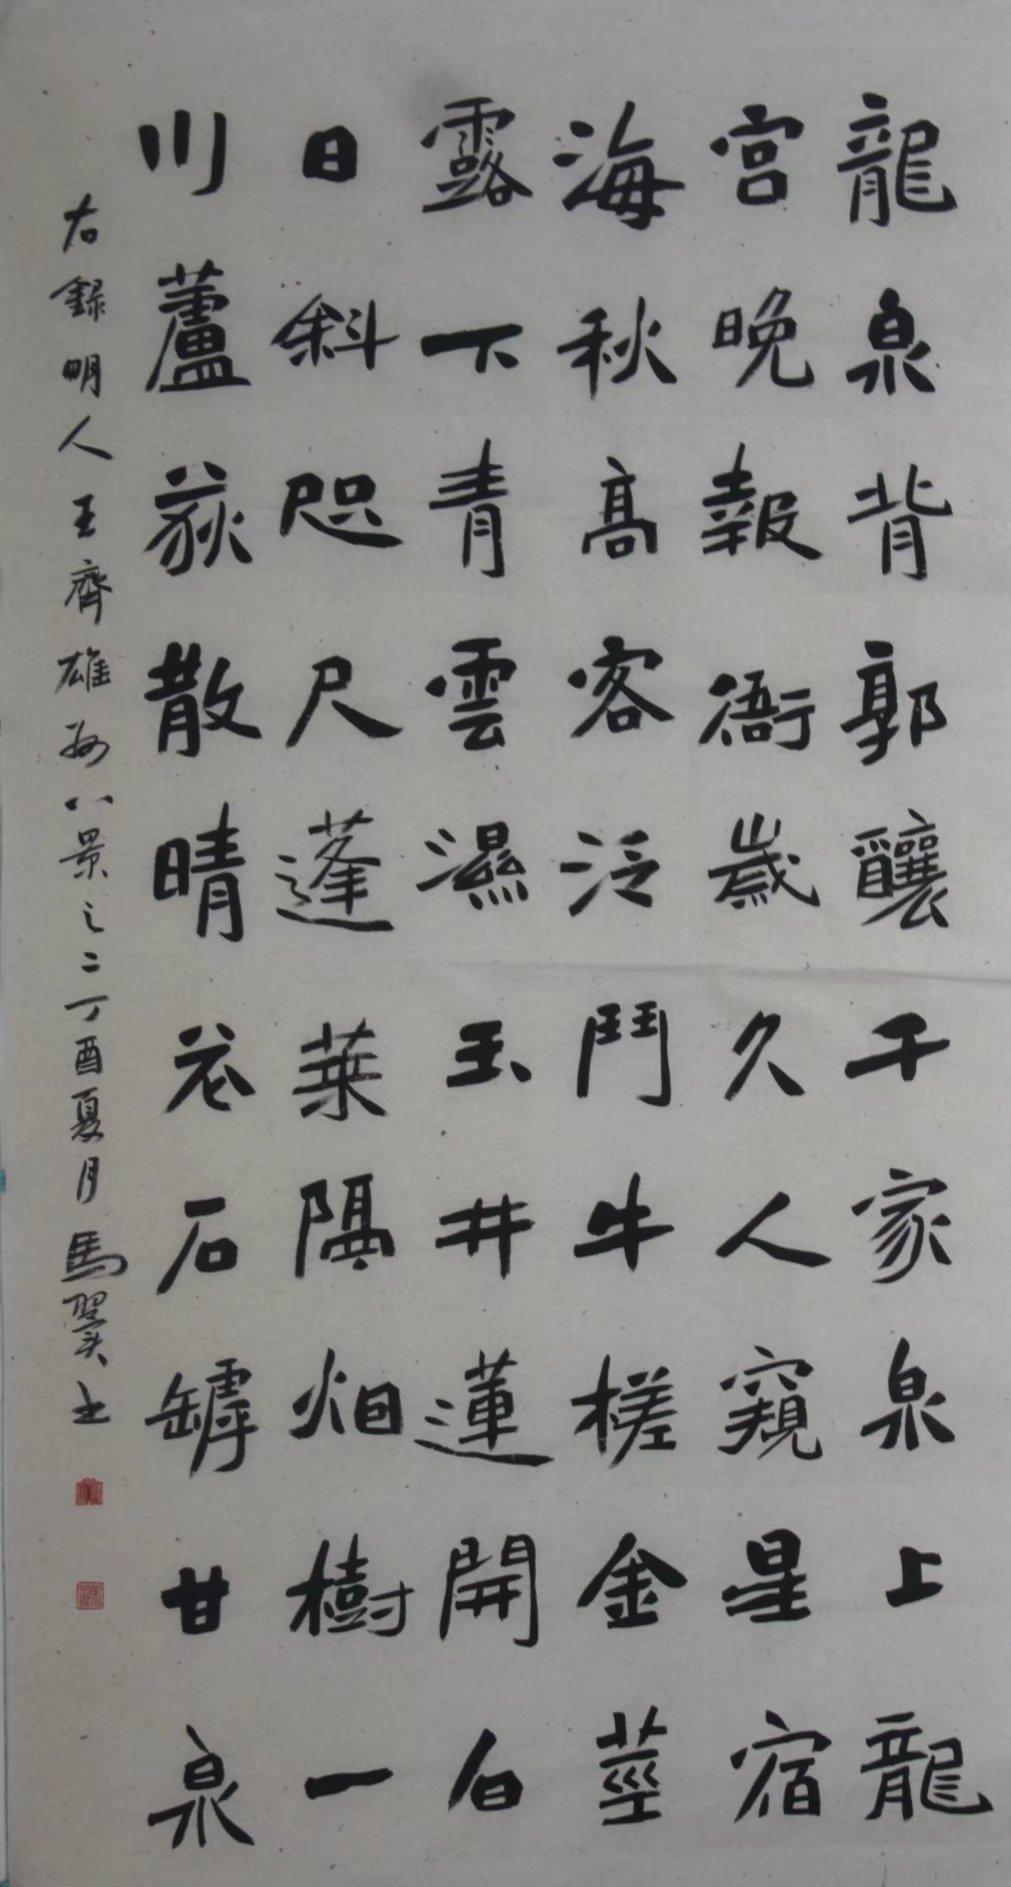 龍泉背郭釀千家泉上龍
宮晚報衙歲久人窺星宿
海秋高客泛鬥牛槎金莖
露下青雲濕玉井蓮開白
日斜咫尺蓬萊隔烟樹一
川蘆荻散晴花石罅甘泉
右錄明人王齊雄州八景之二丁酉夏月馬翼书